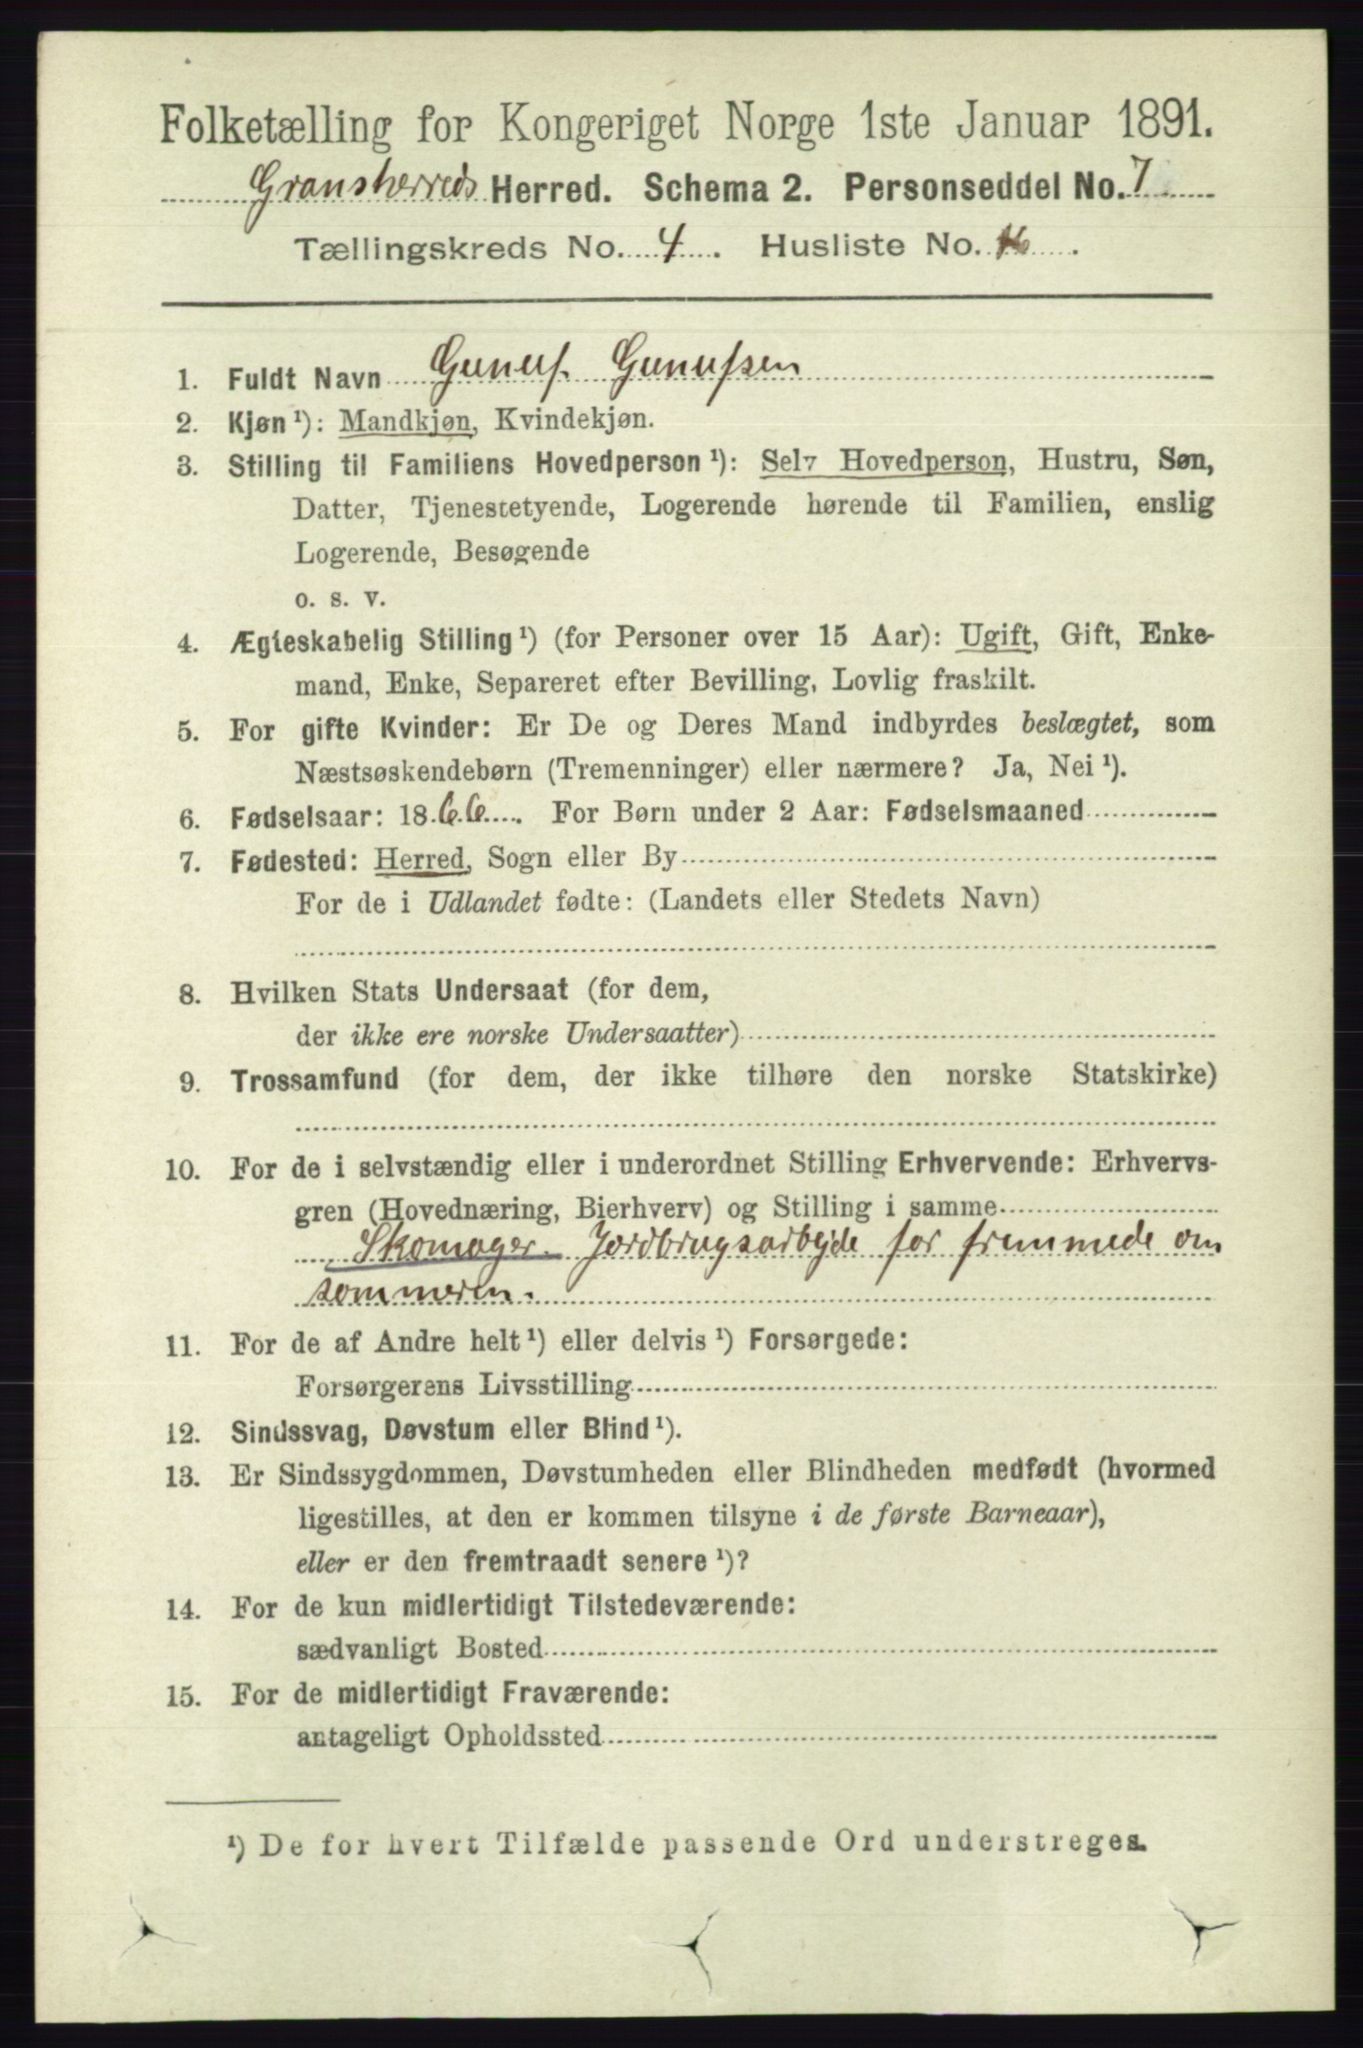 Folketælling for Kongeriget Norge 1ste Januar 1891.
Gransherreds Herred. Schema 2. Personseddel No. 7
Tællingskreds No. 4. Husliste No. 16.
1. Fuldt Navn Gunuf Gunufsen
2. Kjøn ¹): Mandkjøn, Kvindekjøn.
3. Stilling til Familiens Hovedperson ¹): Selv Hovedperson, Hustru, Søn,
Datter, Tjenestetyende, Logerende hørende til Familien, enslig
Logerende, Besøgende
o. s. v.
4. Ægteskabelig Stilling ¹) (for Personer over 15 Aar): Ugift, Gift, Enke-
mand, Enke, Separeret efter Bevilling, Lovlig fraskilt.
5. For gifte Kvinder: Er De og Deres Mand indbyrdes beslægtet, som
Næstsøskendebørn (Tremenninger) eller nærmere? Ja, Nei ¹).
6. Fødselsaar: 1866. For Børn under 2 Aar: Fødselsmaaned
7. Fødested: Herred, Sogn eller By
For de i Udlandet fødte: (Landets eller Stedets Navn)
8. Hvilken Stats Undersaat (for dem,
der ikke ere norske Undersaatter)
9. Trossamfund (for dem, der ikke tilhøre den norske Statskirke)
10. For de i selvstændig eller i underordnet Stilling Erhvervende: Erhvervs-
gren (Hovednæring, Bierhverv) og Stilling i samme
Skomager. Jordbrugsarbejde for fremmede om
sommeren.
11. For de af Andre helt ¹) eller delvis ¹) Forsørgede:
Forsørgerens Livsstilling
12. Sindssvag, Døvstum eller Blind ¹).
13. Er Sindssygdommen, Døvstumheden eller Blindheden medfødt (hvormed
ligestilles, at den er kommen tilsyne i de første Barneaar),
eller er den fremtraadt senere ¹)?
14. For de kun midlertidigt Tilstedeværende:
sædvanligt Bosted
15. For de midlertidigt Fraværende:
antageligt Opholdssted
¹) De for hvert Tilfælde passende Ord understreges.